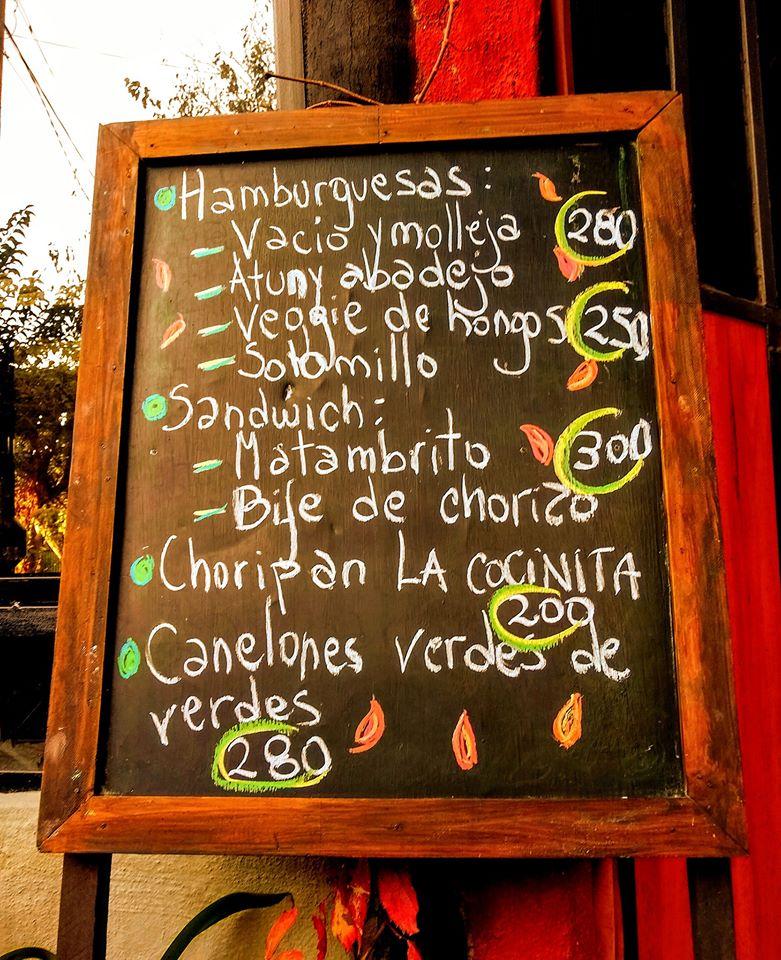 Hamburguesas:
- Vacio y molleja 280
- Atun y abadejo
- Veggie de hongos 250
- Solomillo
Sandwich:
- Matambrito 300
- Bife de chorizo
Choripan LA COCINITA
200
Canelones verdes de
verdes
280